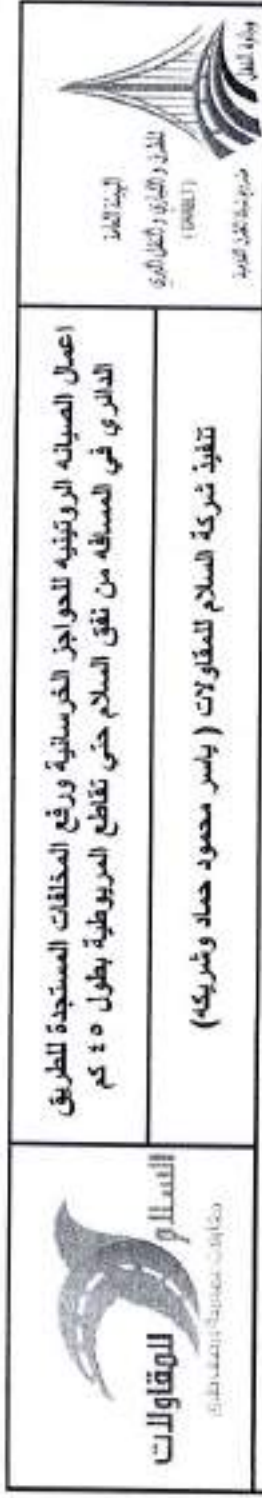 وزارة النقل
الهيئة العامة
للطرق و الكباري و النقل البري
( GARBLT )
اعمال الصيانه الروتينيه للحواجز الخرسانية ورفع المخلفات المستجدة للطريق
الدائري في المسافه من نفق السلام حتي تقاطع المريوطية بطول ٤٥ كم
تنفيذ شركة السلام للمقاولات ( ياسر محمود حماد وشريكه)
السلام
للمقاولات